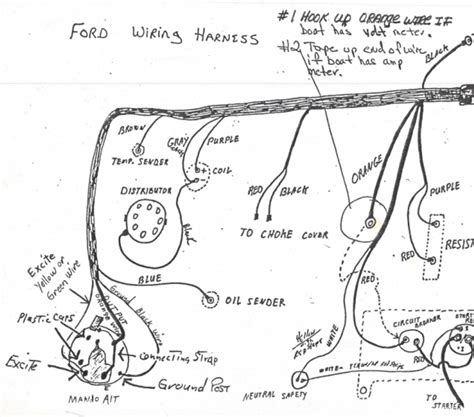 FORD WIRING HARNESS
#1 HOOK UP ORANGE WIRE IF
boat has volt meter.
#2 Tape up end of wire
if boat has amp
meter.
BLACK
BROWN
GRAY
PURPLE
TEMP. SENDER
+ COIL
DISTRIBUTOR
Black
RED
BLACK
TO CHOKE COVER
ORANGE
PURPLE
RED
RESIS
RED
Excite
Yellow or
Green wire
BLUE
OIL SENDER
OUTPUT
ORANGE WIRE
Ground Black wire
Plastic Cars
Connecting Strap
Excite
Ground Post
MANDO ALT
WHITE
Yellow
CIRCUIT
BREAKER
RED
WHITE
NEUTRAL SAFETY
START
TO
STARTER